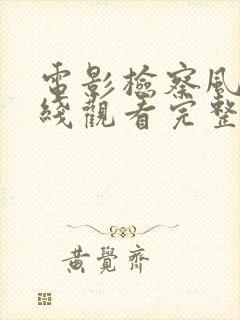 電影檢察風
綫觀看完整
黃覺齊